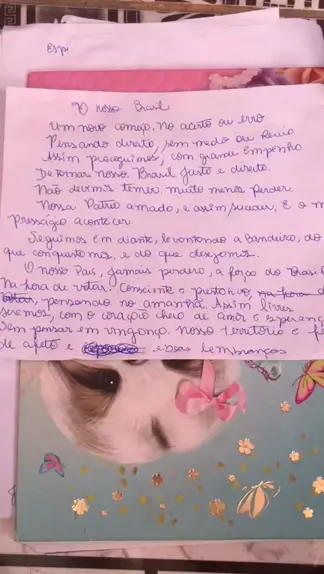 Espi
"O nosso Brasil
Um novo começo. No acerto ou erro
Pensando direito, sem medo ou
Assim proseguimos, com grande Empenho
De tornar nosso Brasil justo e direito.
Não devemos temer muito menos perder
Nossa Pátria amada, e assim suceder, E o m
Presságio acontecer.
Seguimos Em diante, levantando a bandeira, do
que conquistamos, e do que desejamos.
O nosso País, jamais perdera, a força do Brasil
Na hora de votar! Consciente e prestativo na hora d
pensando no amanhã. Assim livres
seremos, com o coração cheio de amor e esperanç
Sem pensar em vingança. Nosso território é
de afeto e essas lembranças